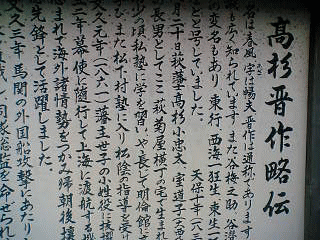 高杉晋作略伝
名は春風 字は暢夫 晋作は通称であります
も広く知られています また谷梅之助、谷潜
の変名もあり 東行、西海一狂生、東生一
と号していました。
天保十年(一八三
月二十日萩藩士高杉小忠太
長男としてここ萩菊屋横丁の宅で生まれ
少の頃私塾に学を習い、やゝ長じ明倫館に
学びまた松下村塾に入り松陰の指導を受け
文久元年(一八六一)藩主世子の小姓役に
二年幕使に随行して上海に渡航する
まれて海外諸情勢をつかみ帰朝後攘
先鋒として活躍しました。
文久三年 馬関の外国船攻撃にあたり
総監を命ぜられ